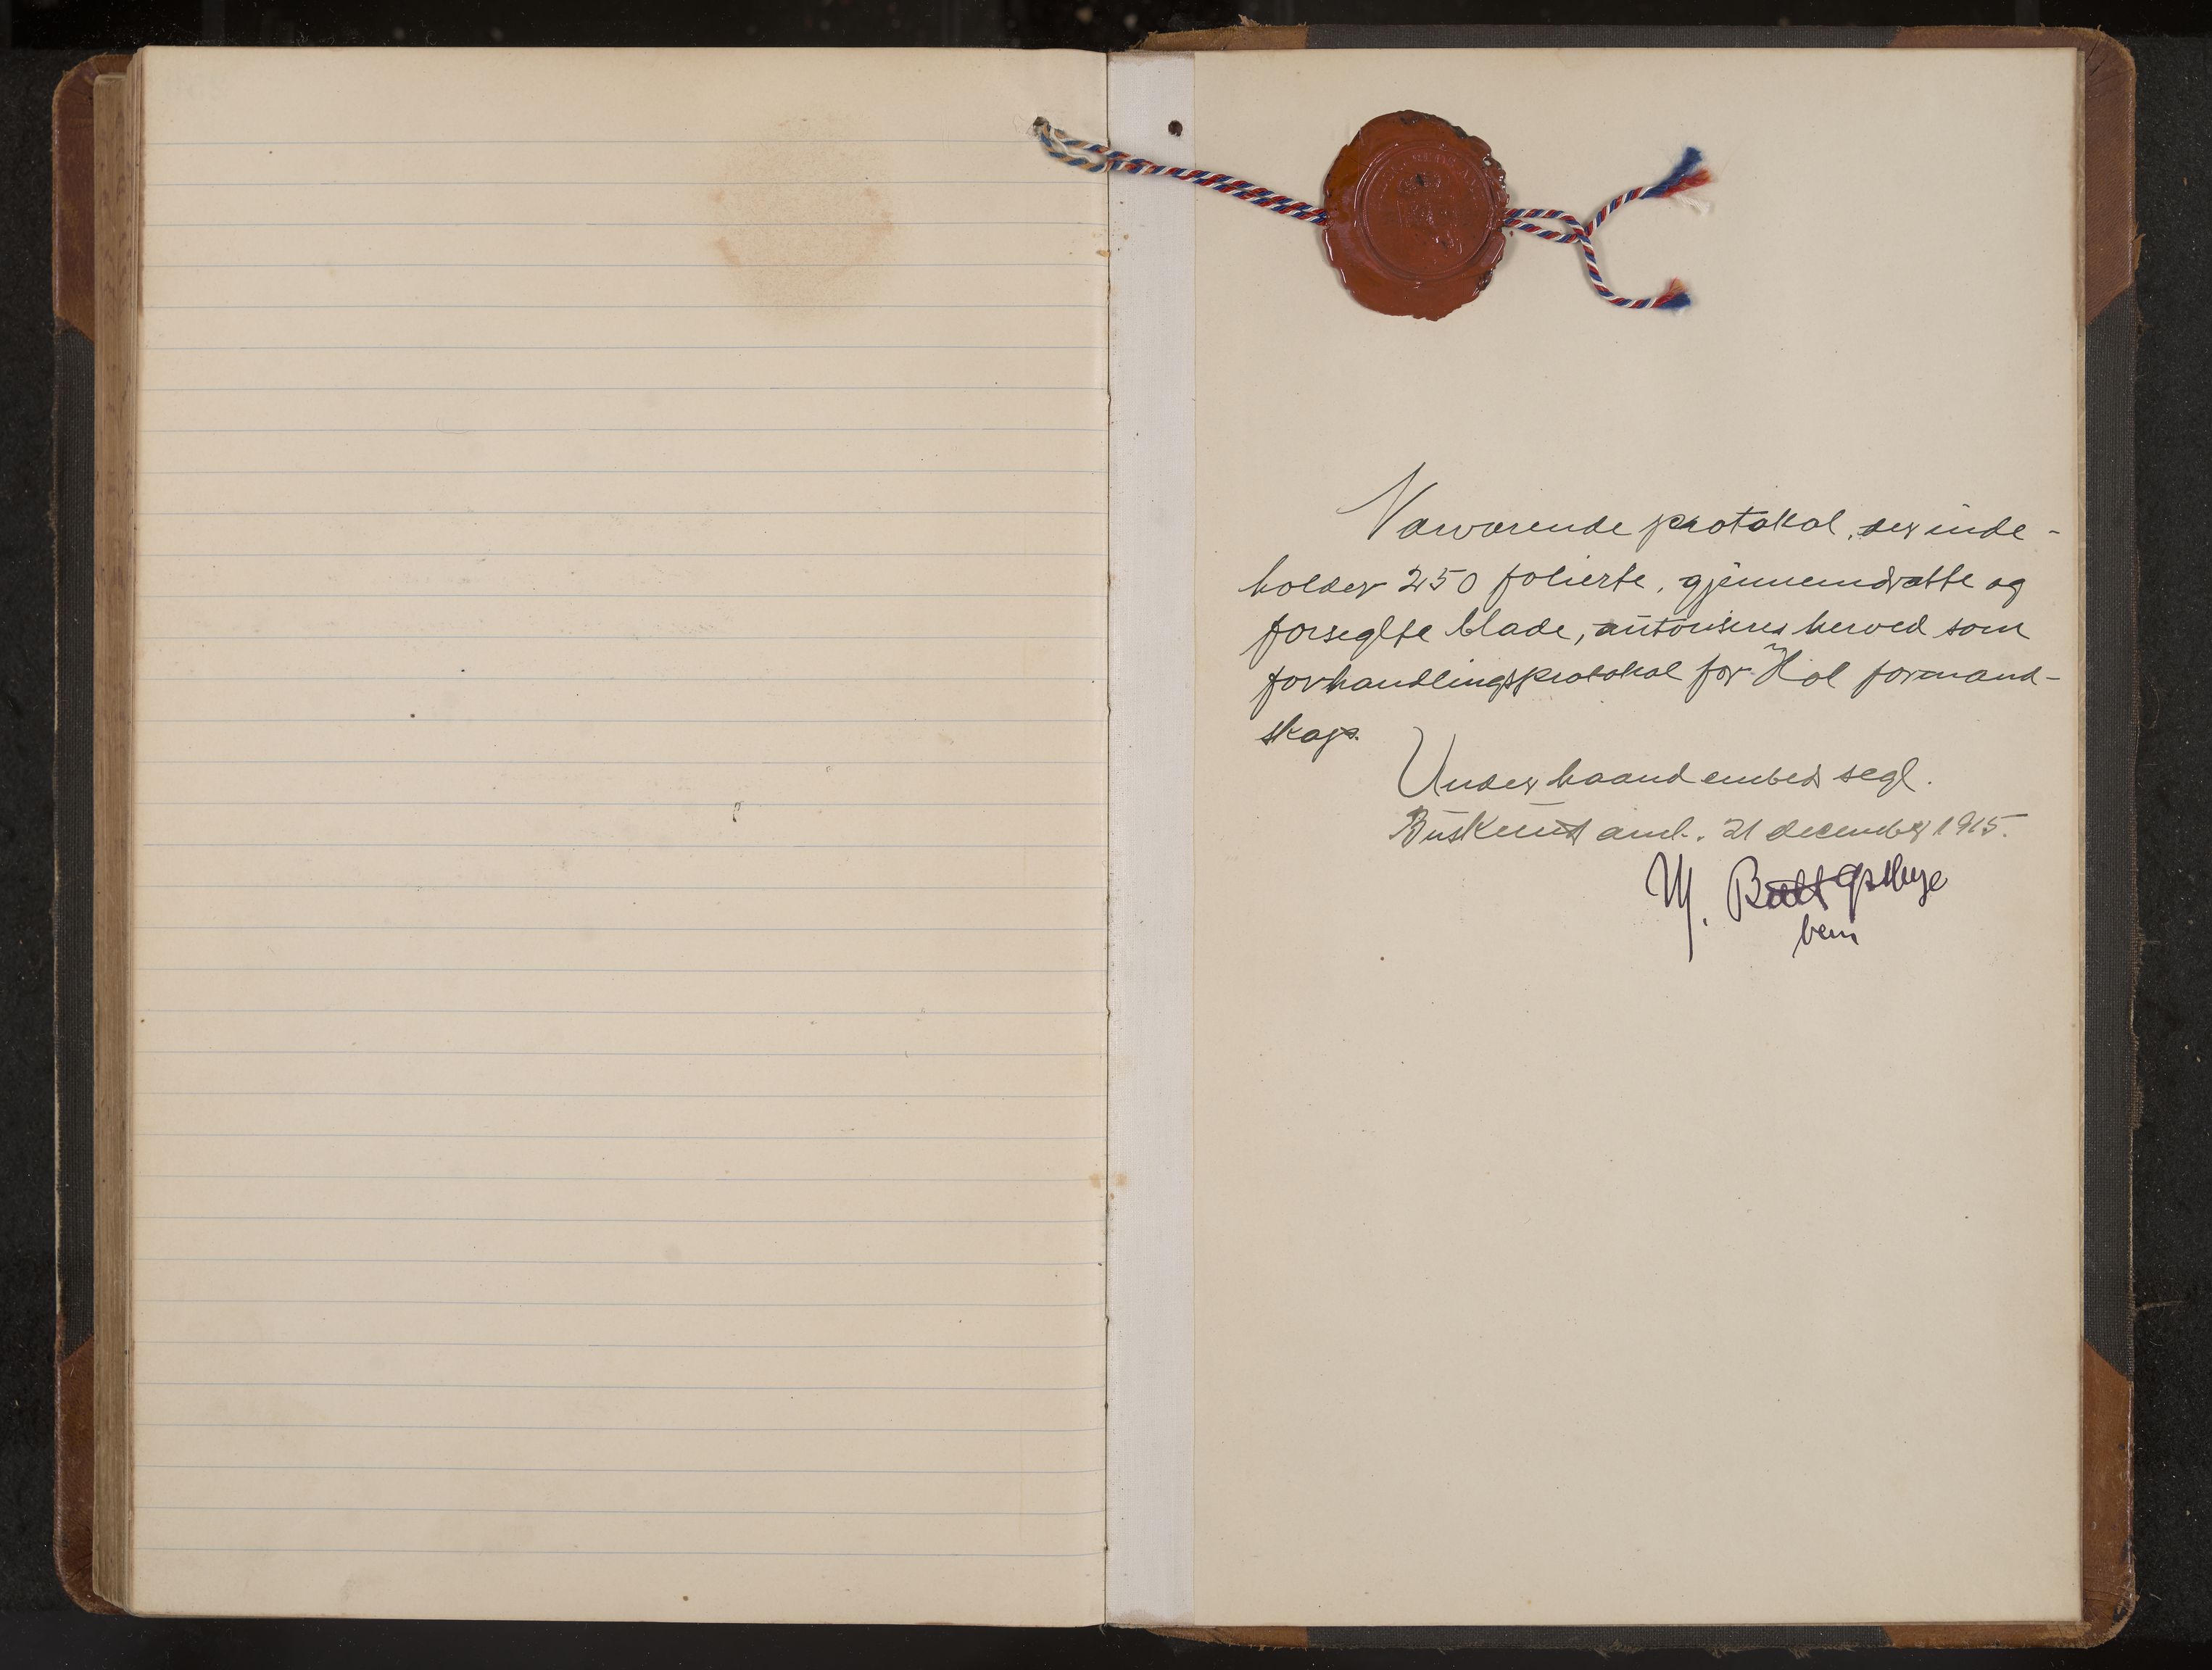 Nærværende protokol, der inde-
holder 250 folierte, gjennemdratte og
forseglte blade, autoriseres herved som
forhandlingsprotokol for Hol formand-
skap.
Under haand embeds segl.
Buskerud amt. 21 december 1915.
M.
bem